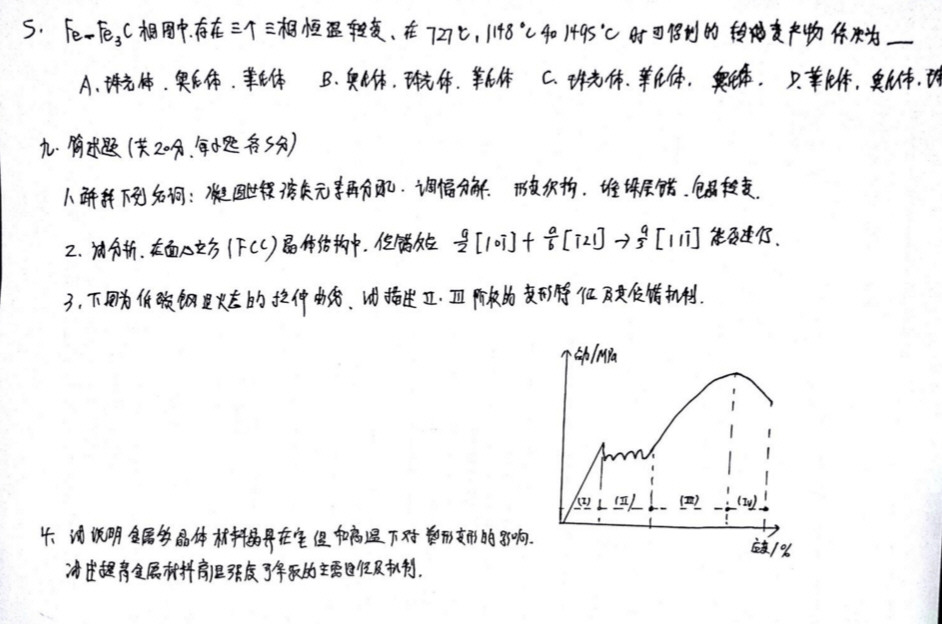 5. Fe-Fe₃C 相图中存在三个三相恒温转变、在 727℃, 1148℃和1495℃时可得到的转变产物依次为__
A. 珠光体. 奥氏体. 莱氏体 B. 奥氏体. 珠光体. 莱氏体 C. 珠光体. 莱氏体. 奥氏体. D. 莱氏体, 奥氏体. 珠
九. 简述题 (共20分、每小题各5分)
1. 解释下列名词: 凝固过程溶质元素再分配. 调幅分解. 形变织构. 堆垛层错. 包晶转变.
2. 请分析. 在面心立方 (FCC) 晶体结构中. 位错反应 a/2 [10ī] + a/6 [ī2ī] → a/3 [11ī] 能否进行.
3. 下图为低碳钢退火态的拉伸曲线、请描述 II. III 阶段的变形特征及位错机制.
应力/MPa
(I) (II) (III) (IV)
应变/%
4. 请说明金属多晶体材料晶界在室温和高温下对塑形变形的影响.
请述提高金属材料高温强度的主要途径及机制.